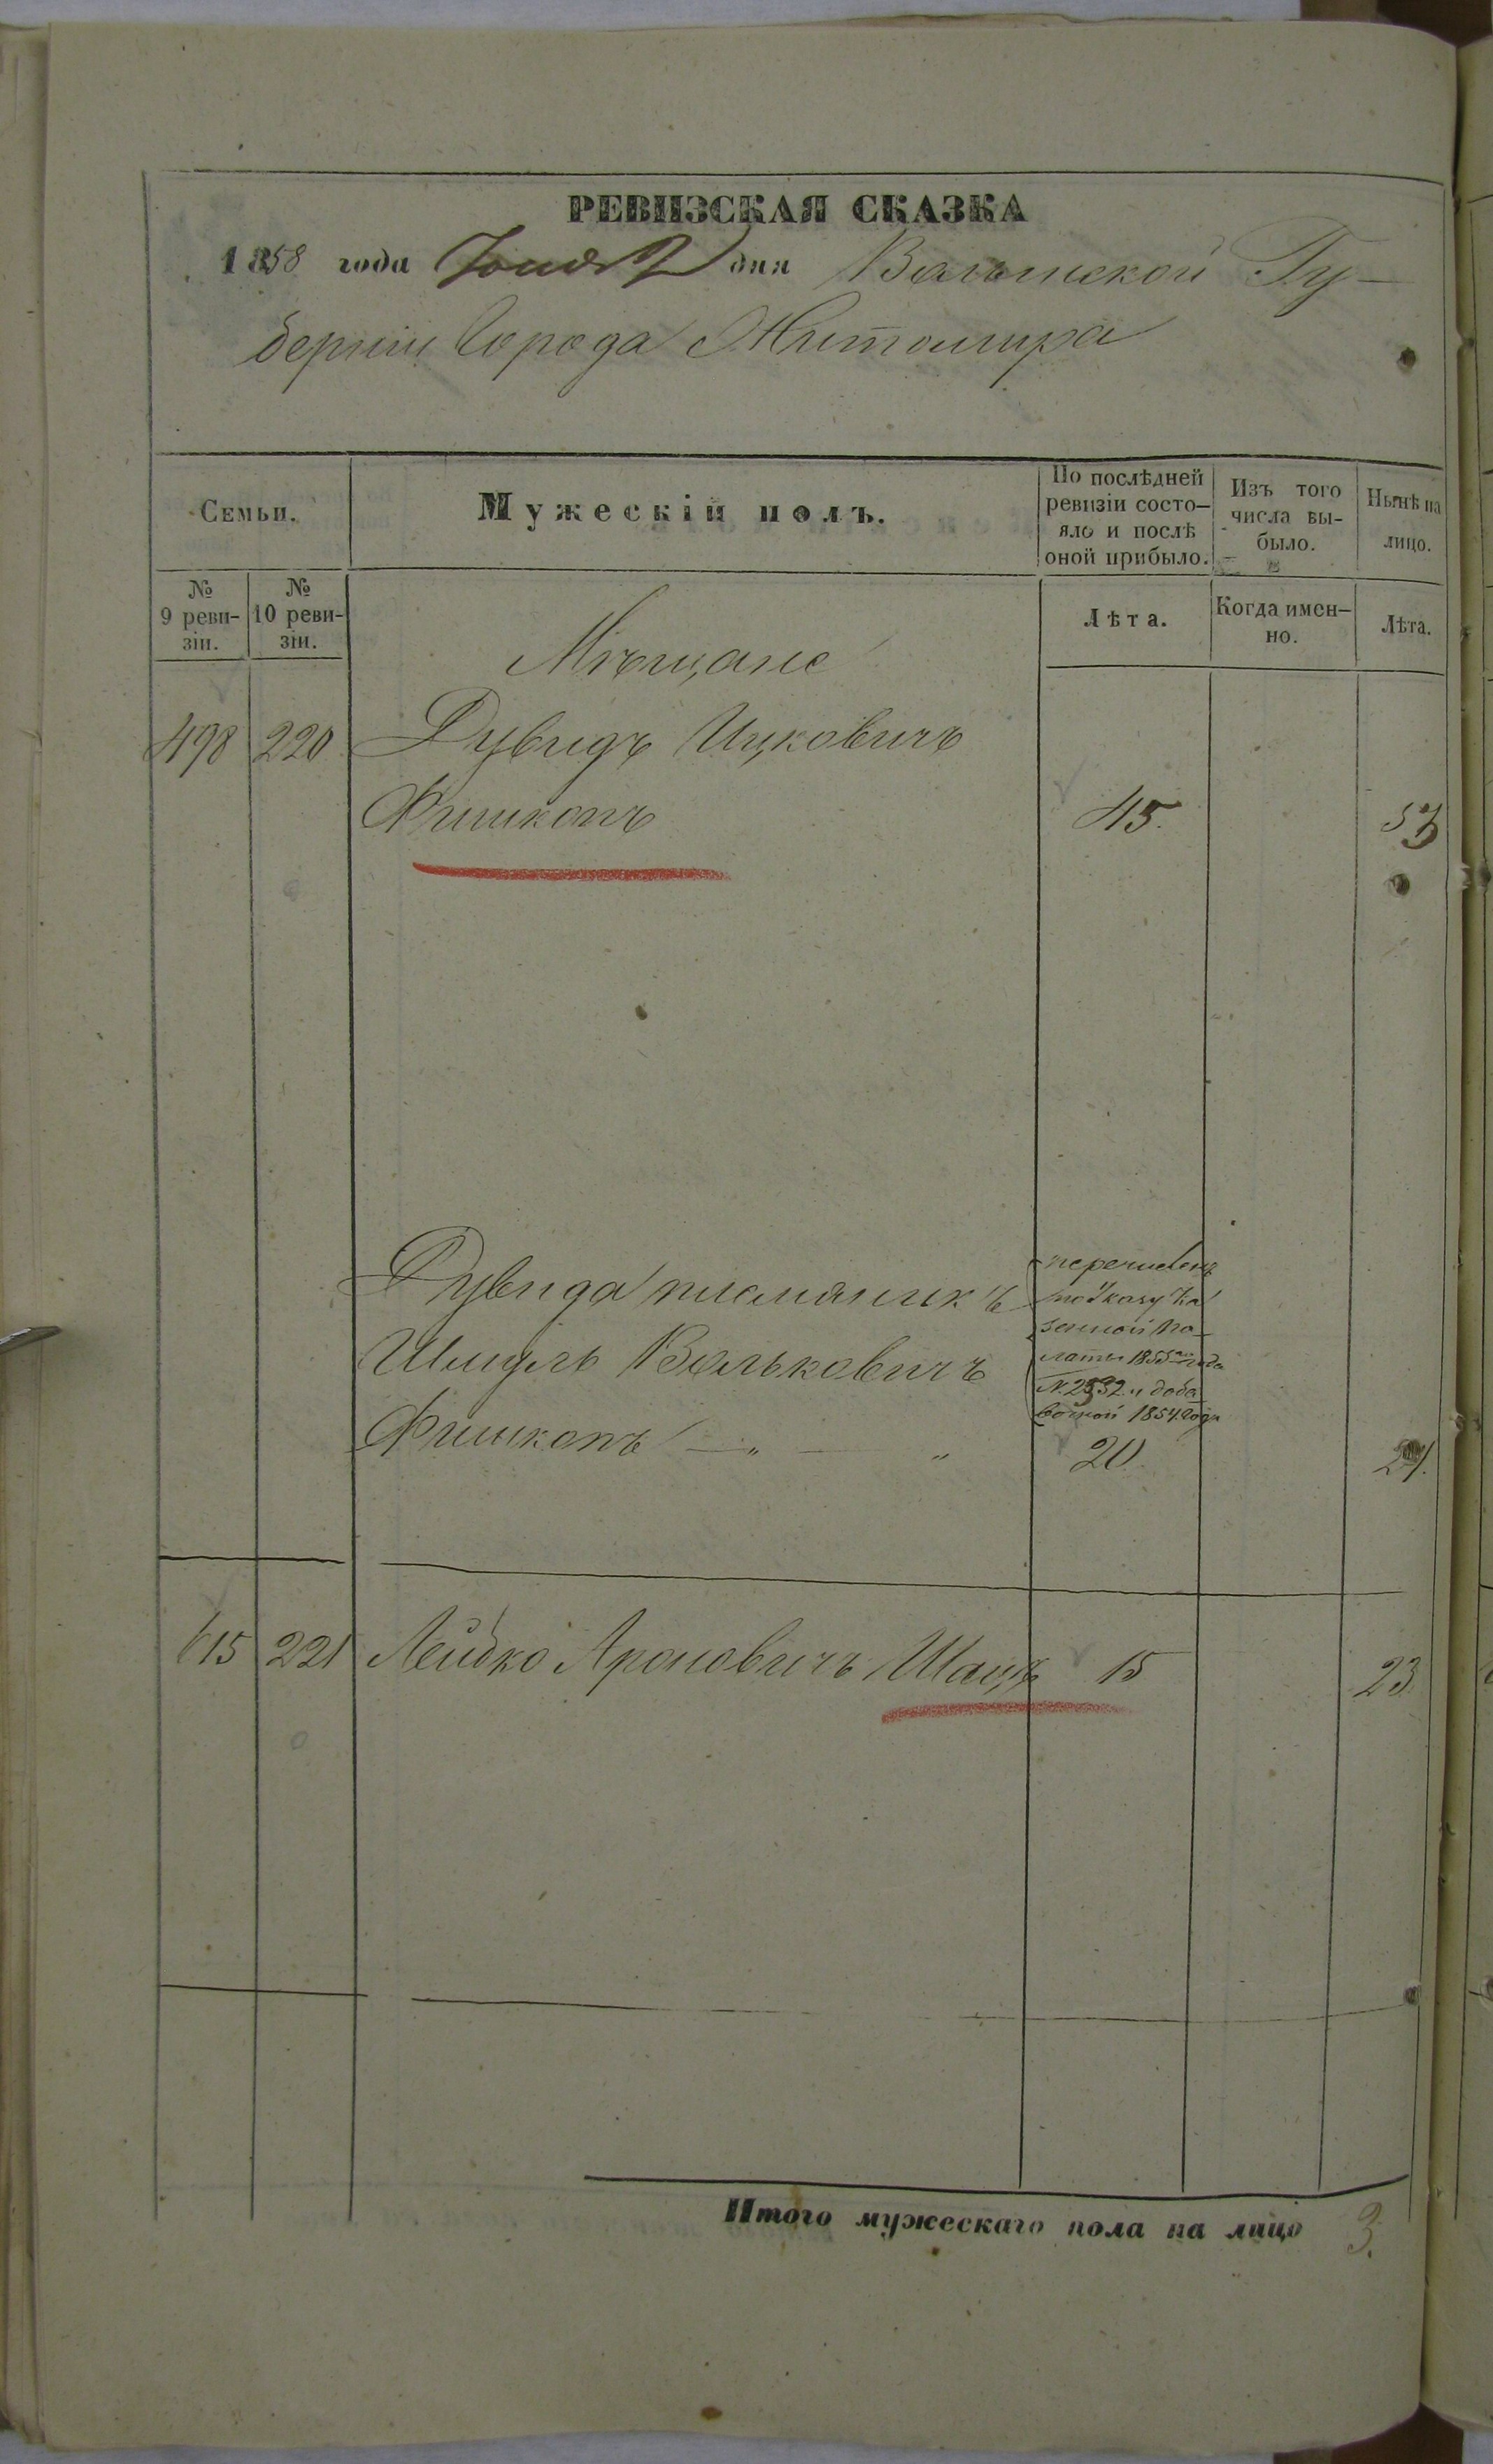 РЕВИЗСКАЯ СКАЗКА
1858 года Іюня дня Волынской Гу-
берніи Города Житомира
Семьи.
Мужескій полъ.
По послѣдней
ревизіи состо-
яло и послѣ
оной прибыло.
Изъ того
числа вы-
было.
Нынѣ на
лицо.
№
9 реви-
зіи.
№
10 реви-
зіи.
Лѣта.
Когда имен-
но.
Лѣта.
Мѣщане
498 220 Дувидъ Ицковичъ
Фишкопъ 45. 53
Дувида племяникъ
Шмуль Вольковичъ
Фишкопъ — „ — „ 20
перечисленъ
по Указу Ка
зенной Па-
латы 1853 года
№ 2332 и доба
вочной 1854 года
615 221 Лейбко Ароновичъ Шацъ 15 23
Итого мужескаго пола на лицо 3.